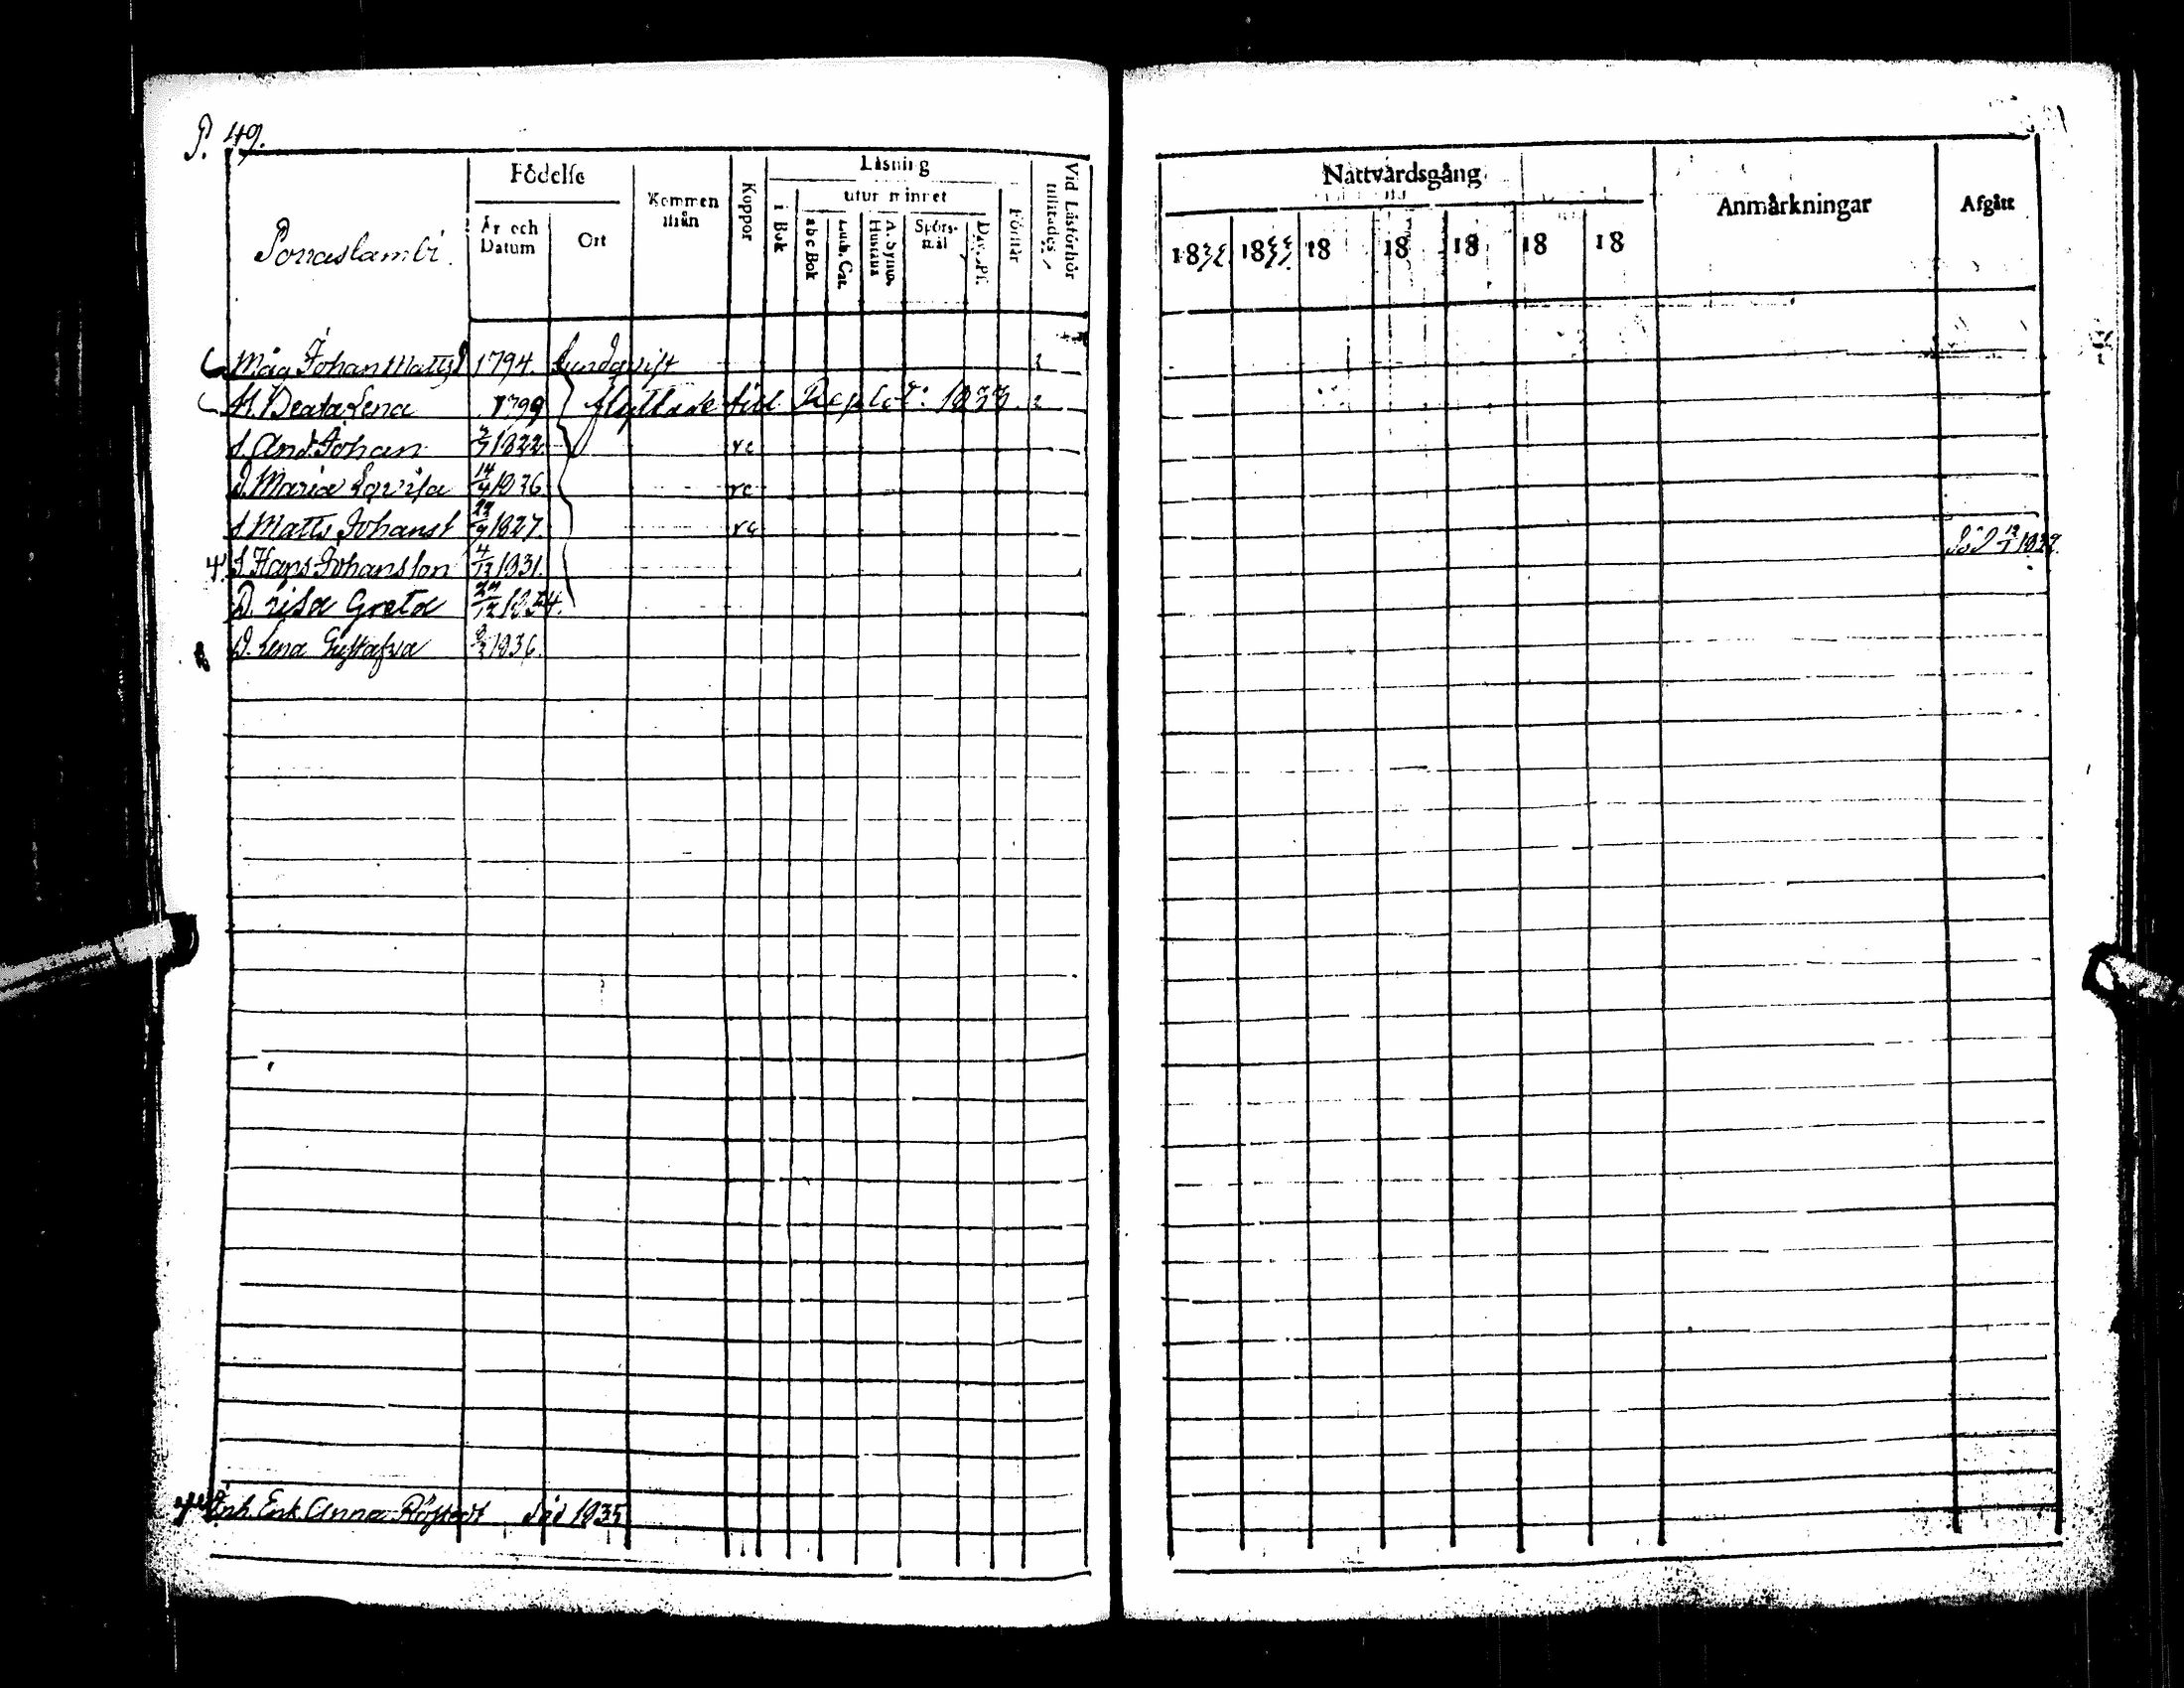 P. 49.
Porraslambi.
Födelse
År och Datum
Ort
Kommen ifrån
Koppor
Läsning
i Bok
utur minnet
abc Bok
Luth. Cat.
A. Symb. Hustafla
Spörsmål
Dav. Ps.
Förstår
Vid Läsförhör
Måg Johan Matts 1794. Lundqvist
H. Beata Lena 1799 flyttade till Replot
S. And. Johan 1822. vc
D. Maria Lovisa 14/4 1826 vc
S. Matts Johans 1827. vc
S Hans Johansson 4/12 1831.
D. Lisa Greta 1834.
D. Lena Gustafva 1836.
Inh. Enk. Anna död 1835
Nattvardsgång
18 18 18 18 18 18 18
Anmärkningar
Afgått
Död